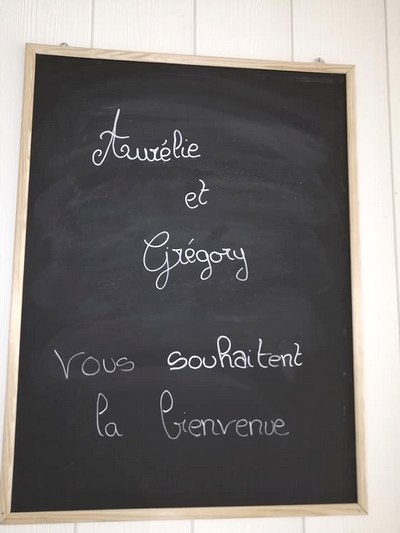 Aurélie
et
Grégory
vous souhaitent
la bienvenue